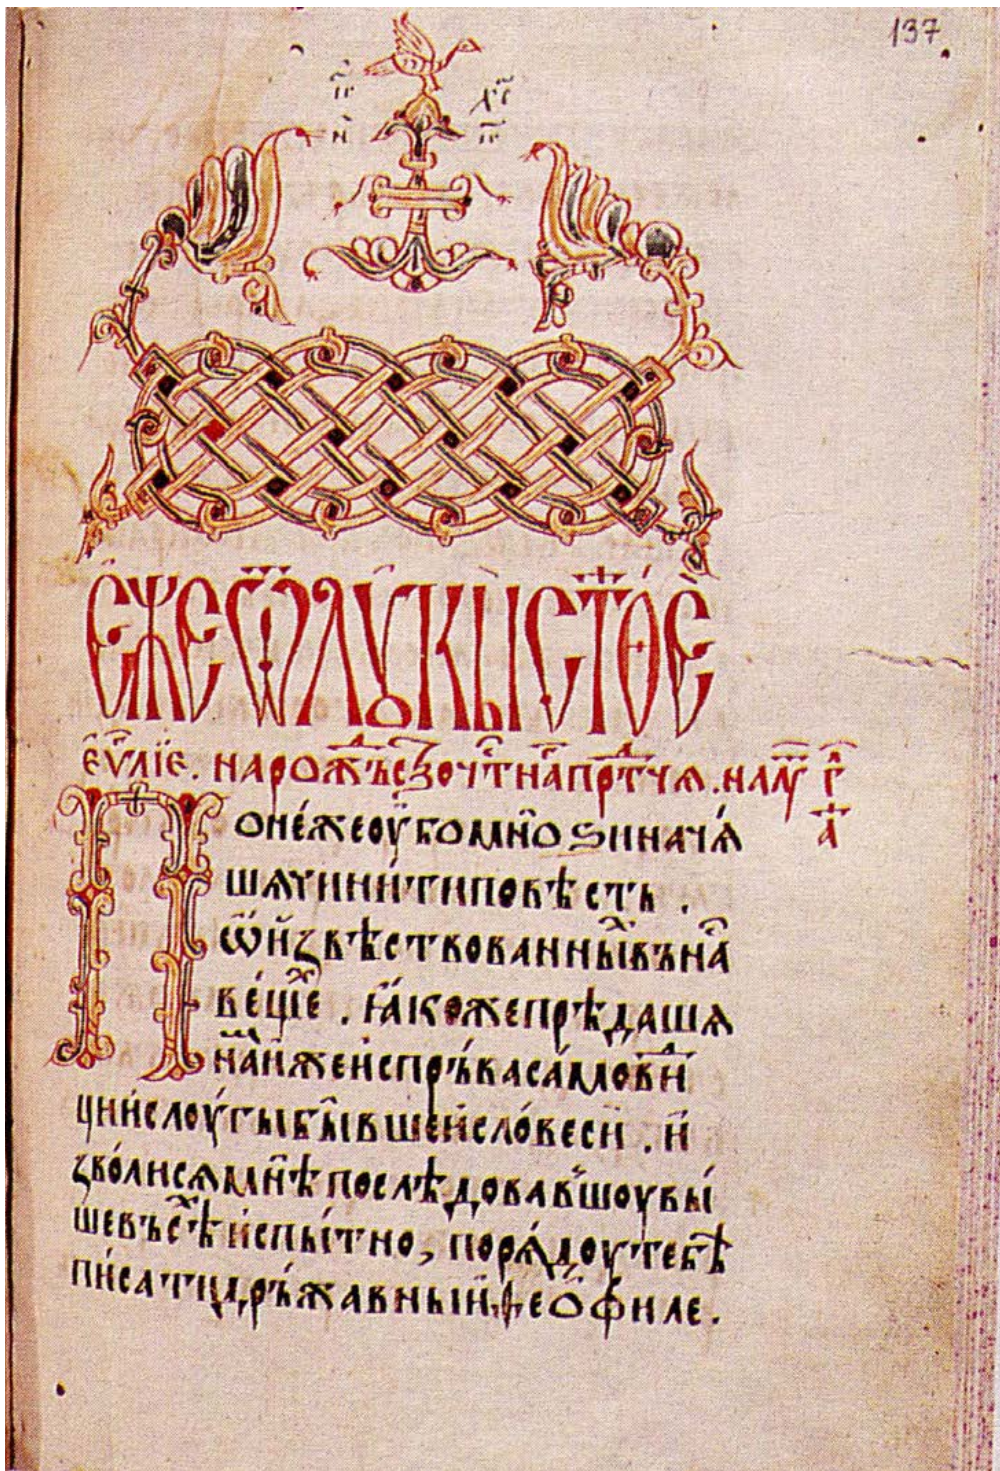 137
І҃С Х҃С
Е́ЖЕ Ѿ ЛУКЫ СТ҃О́Е
Е҆ѴⷢЛІЕ. НА РОЖⷣЬСⷡО ЧСⷭТНАⷢ ПРⷣТЧѦ. НА ЛИⷮУⷬ Г҃
А҃
Поне́же оу҆́бо мно́ѕи нача́
шѧ чини́ти по́вѣсть.
ѿ и҆звѣствованныⷯ въ наⷭ
ве́щеⷯ. ꙗ҆́коже прѣдашѧ
наⷨ и҆́же и҆спръ́ва са́мовиⷣ
ци и҆ слоугы́ бы́вшеи҆ сло́веси. и҆
зво́лисѧ и҆ мнѣ̀ послѣ́довавшоу вы́
ше въ сⷯѣ и҆спы́тно, порѧ́доу тебѣ̀
писати дръ́жавныи҆ ѳео҆́филе.